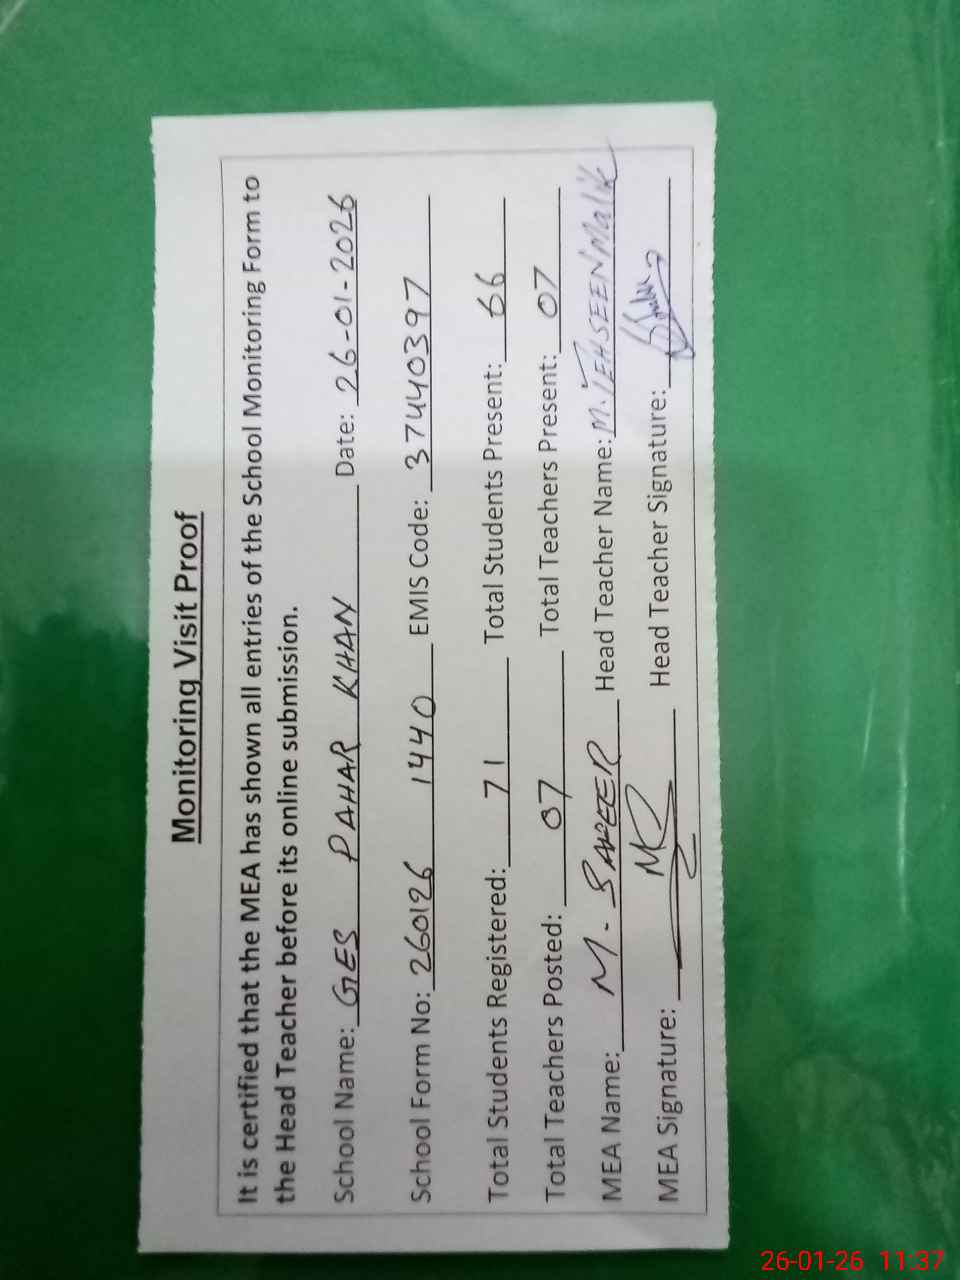 Monitoring Visit Proof
It is certified that the MEA has shown all entries of the School Monitoring Form to
the Head Teacher before its online submission.
School Name: GES PAHAR KHAN Date: 26-01-2026
School Form No: 260126 1440 EMIS Code: 37440397
Total Students Registered: 71 Total Students Present: 66
Total Teachers Posted: 07 Total Teachers Present: 07
MEA Name: M. Head Teacher Name: M. TEHSEEN Malik
MEA Signature: Head Teacher Signature:
26-01-26 11:37